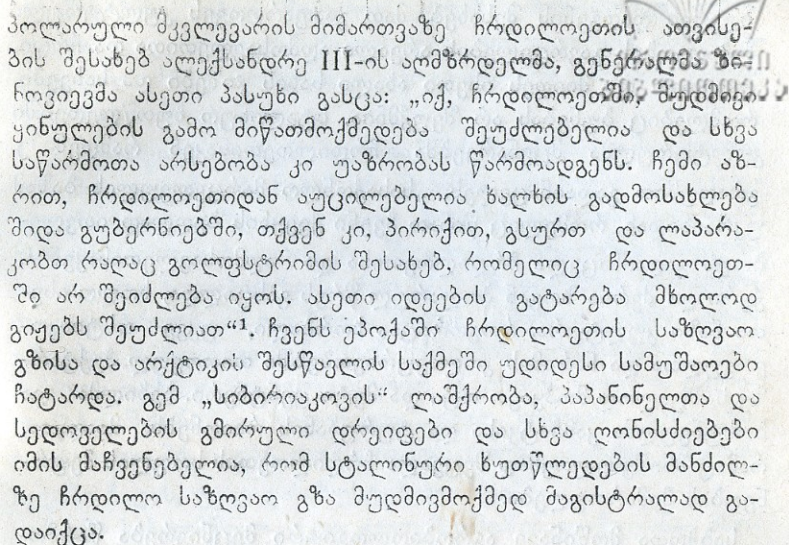 პოლარული მკვლევარის მიმართვაზე ჩრდილოეთის ათვისე-
ბის შესახებ ალექსანდრე III-ის აღმზრდელმა, გენერალმა ზი-
ნოვიევმა ასეთი პასუხი გასცა: „იქ, ჩრდილოეთში, მუდმივი
ყინულების გამო მიწათმოქმედება შეუძლებელია და სხვა
საწარმოთა არსებობა კი უაზრობას წარმოადგენს. ჩემი აზ-
რით, ჩრდილოეთიდან აუცილებელია ხალხის გადმოსახლება
შიდა გუბერნიებში, თქვენ კი, პირიქით, გსურთ და ლაპარა-
კობთ რაღაც გოლფსტრიმის შესახებ, რომელიც ჩრდილოეთ-
ში არ შეიძლება იყოს. ასეთი იდეების გატარება მხოლოდ
გიჟებს შეუძლიათ“¹. ჩვენს ეპოქაში ჩრდილოეთის საზღვაო
გზისა და არქტიკის შესწავლის საქმეში უდიდესი სამუშაოები
ჩატარდა. გემ „სიბირიაკოვის“ ლაშქრობა, პაპანინელთა და
სედოველების გმირული დრეიფები და სხვა ღონისძიებები
იმის მაჩვენებელია, რომ სტალინური ხუთწლედების მანძილ-
ზე ჩრდილო საზღვაო გზა მუდმივმოქმედ მაგისტრალად გა-
დაიქცა.